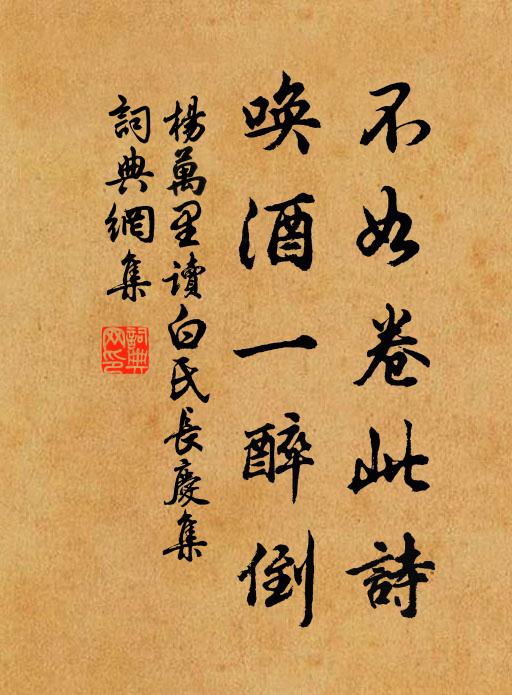 不如卷此詩
喚酒一醉倒
楊萬里讀白氏長慶集
詞典網集
詞典网印